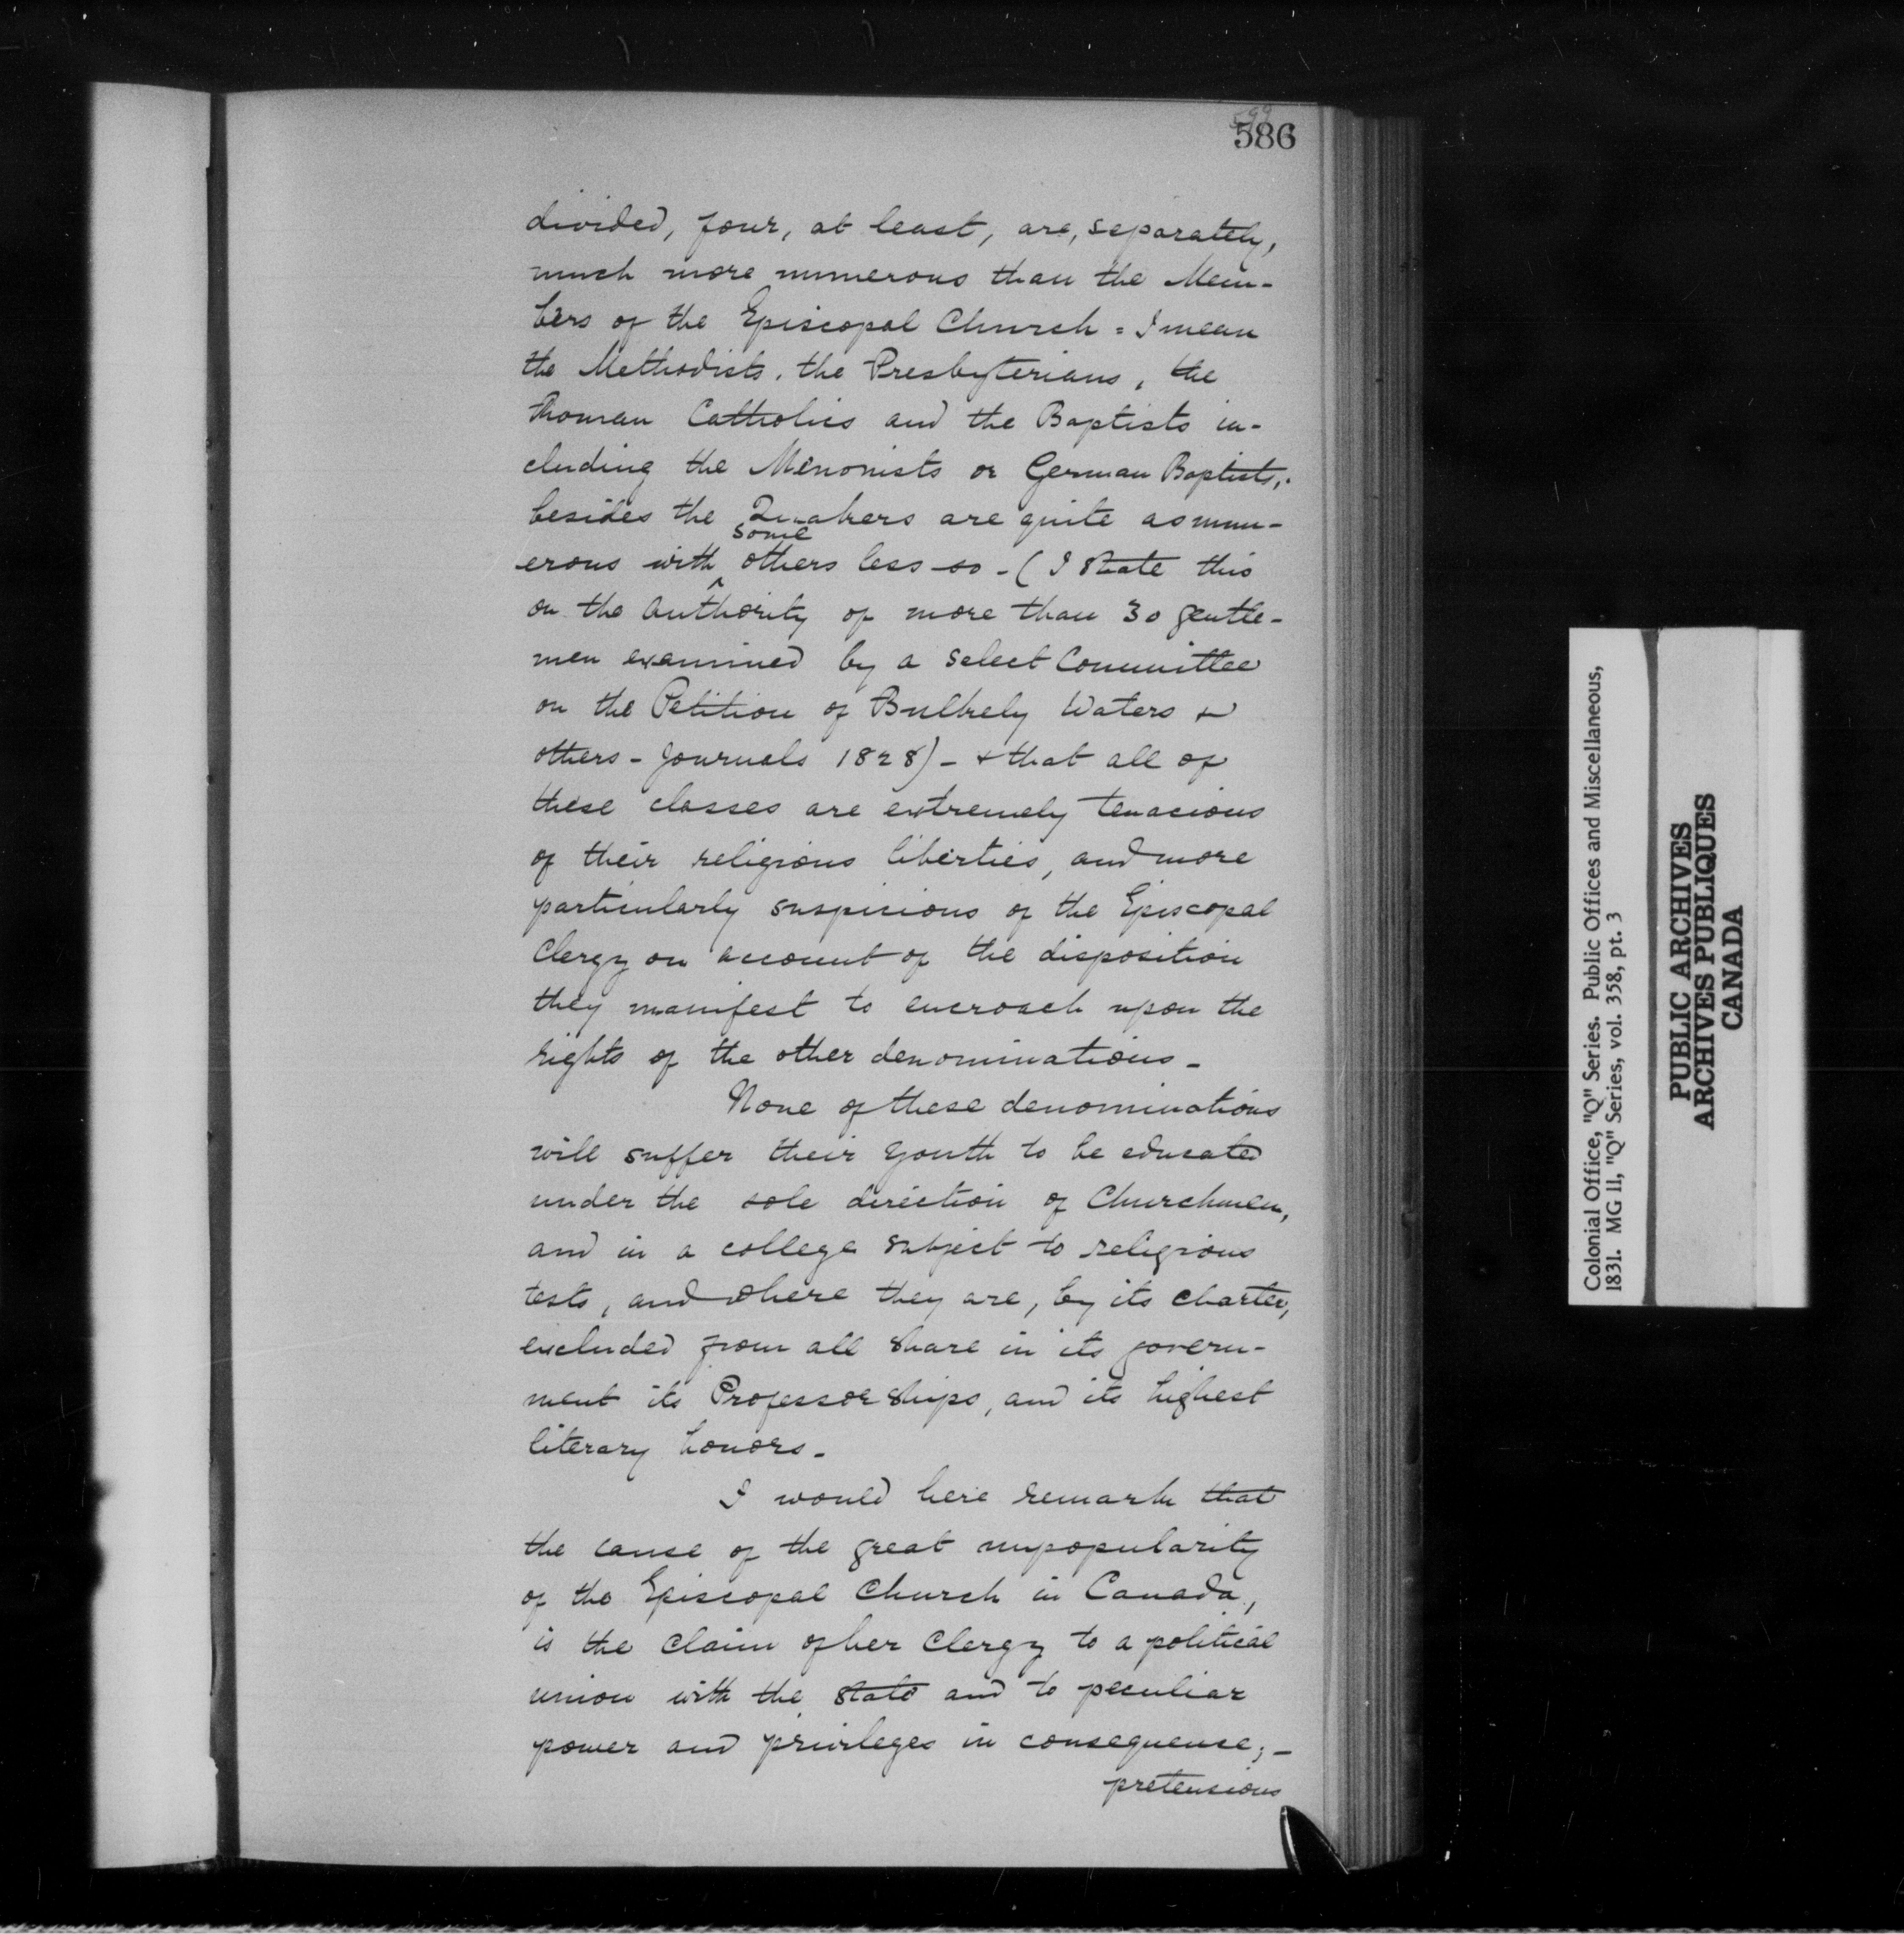 586
divided, four, at least, are, separately,
much more numerous than the Mem-
bers of the Episcopal Church = I mean
the Methodists, the Presbyterians, the
Roman Catholics and the Baptists in-
cluding the Menonists or German Baptists,.
besides the Quakers are quite as num-
some
erous with ^ others less so - (I state this
on the authority of more than 30 gentle-
men examined by a Select Committee
on the Petition of Bulkely Waters &
others - Journals 1828) - & that all of
these classes are extremely tenacious
of their religious liberties, and more
particularly suspicious of the Episcopal
Clergy on account of the disposition
they manifest to encroach upon the
rights of the other denominations -
None of these denominations
will suffer their youth to be educated
under the sole direction of Churchmen,
and in a college subject to religious
tests, and where they are, by its charter,
excluded from all share in its govern-
ment its Professorships, and its highest
literary honors -
I would here remark that
the cause of the great unpopularity
of the Episcopal Church in Canada,
is the claim of her Clergy to a political
union with the state and to peculiar
power and privileges in consequence; -
pretensions
Colonial Office, "Q" Series. Public Offices and Miscellaneous,
1831. MG 11, "Q" Series, vol. 358, pt. 3
PUBLIC ARCHIVES
ARCHIVES PUBLIQUES
CANADA